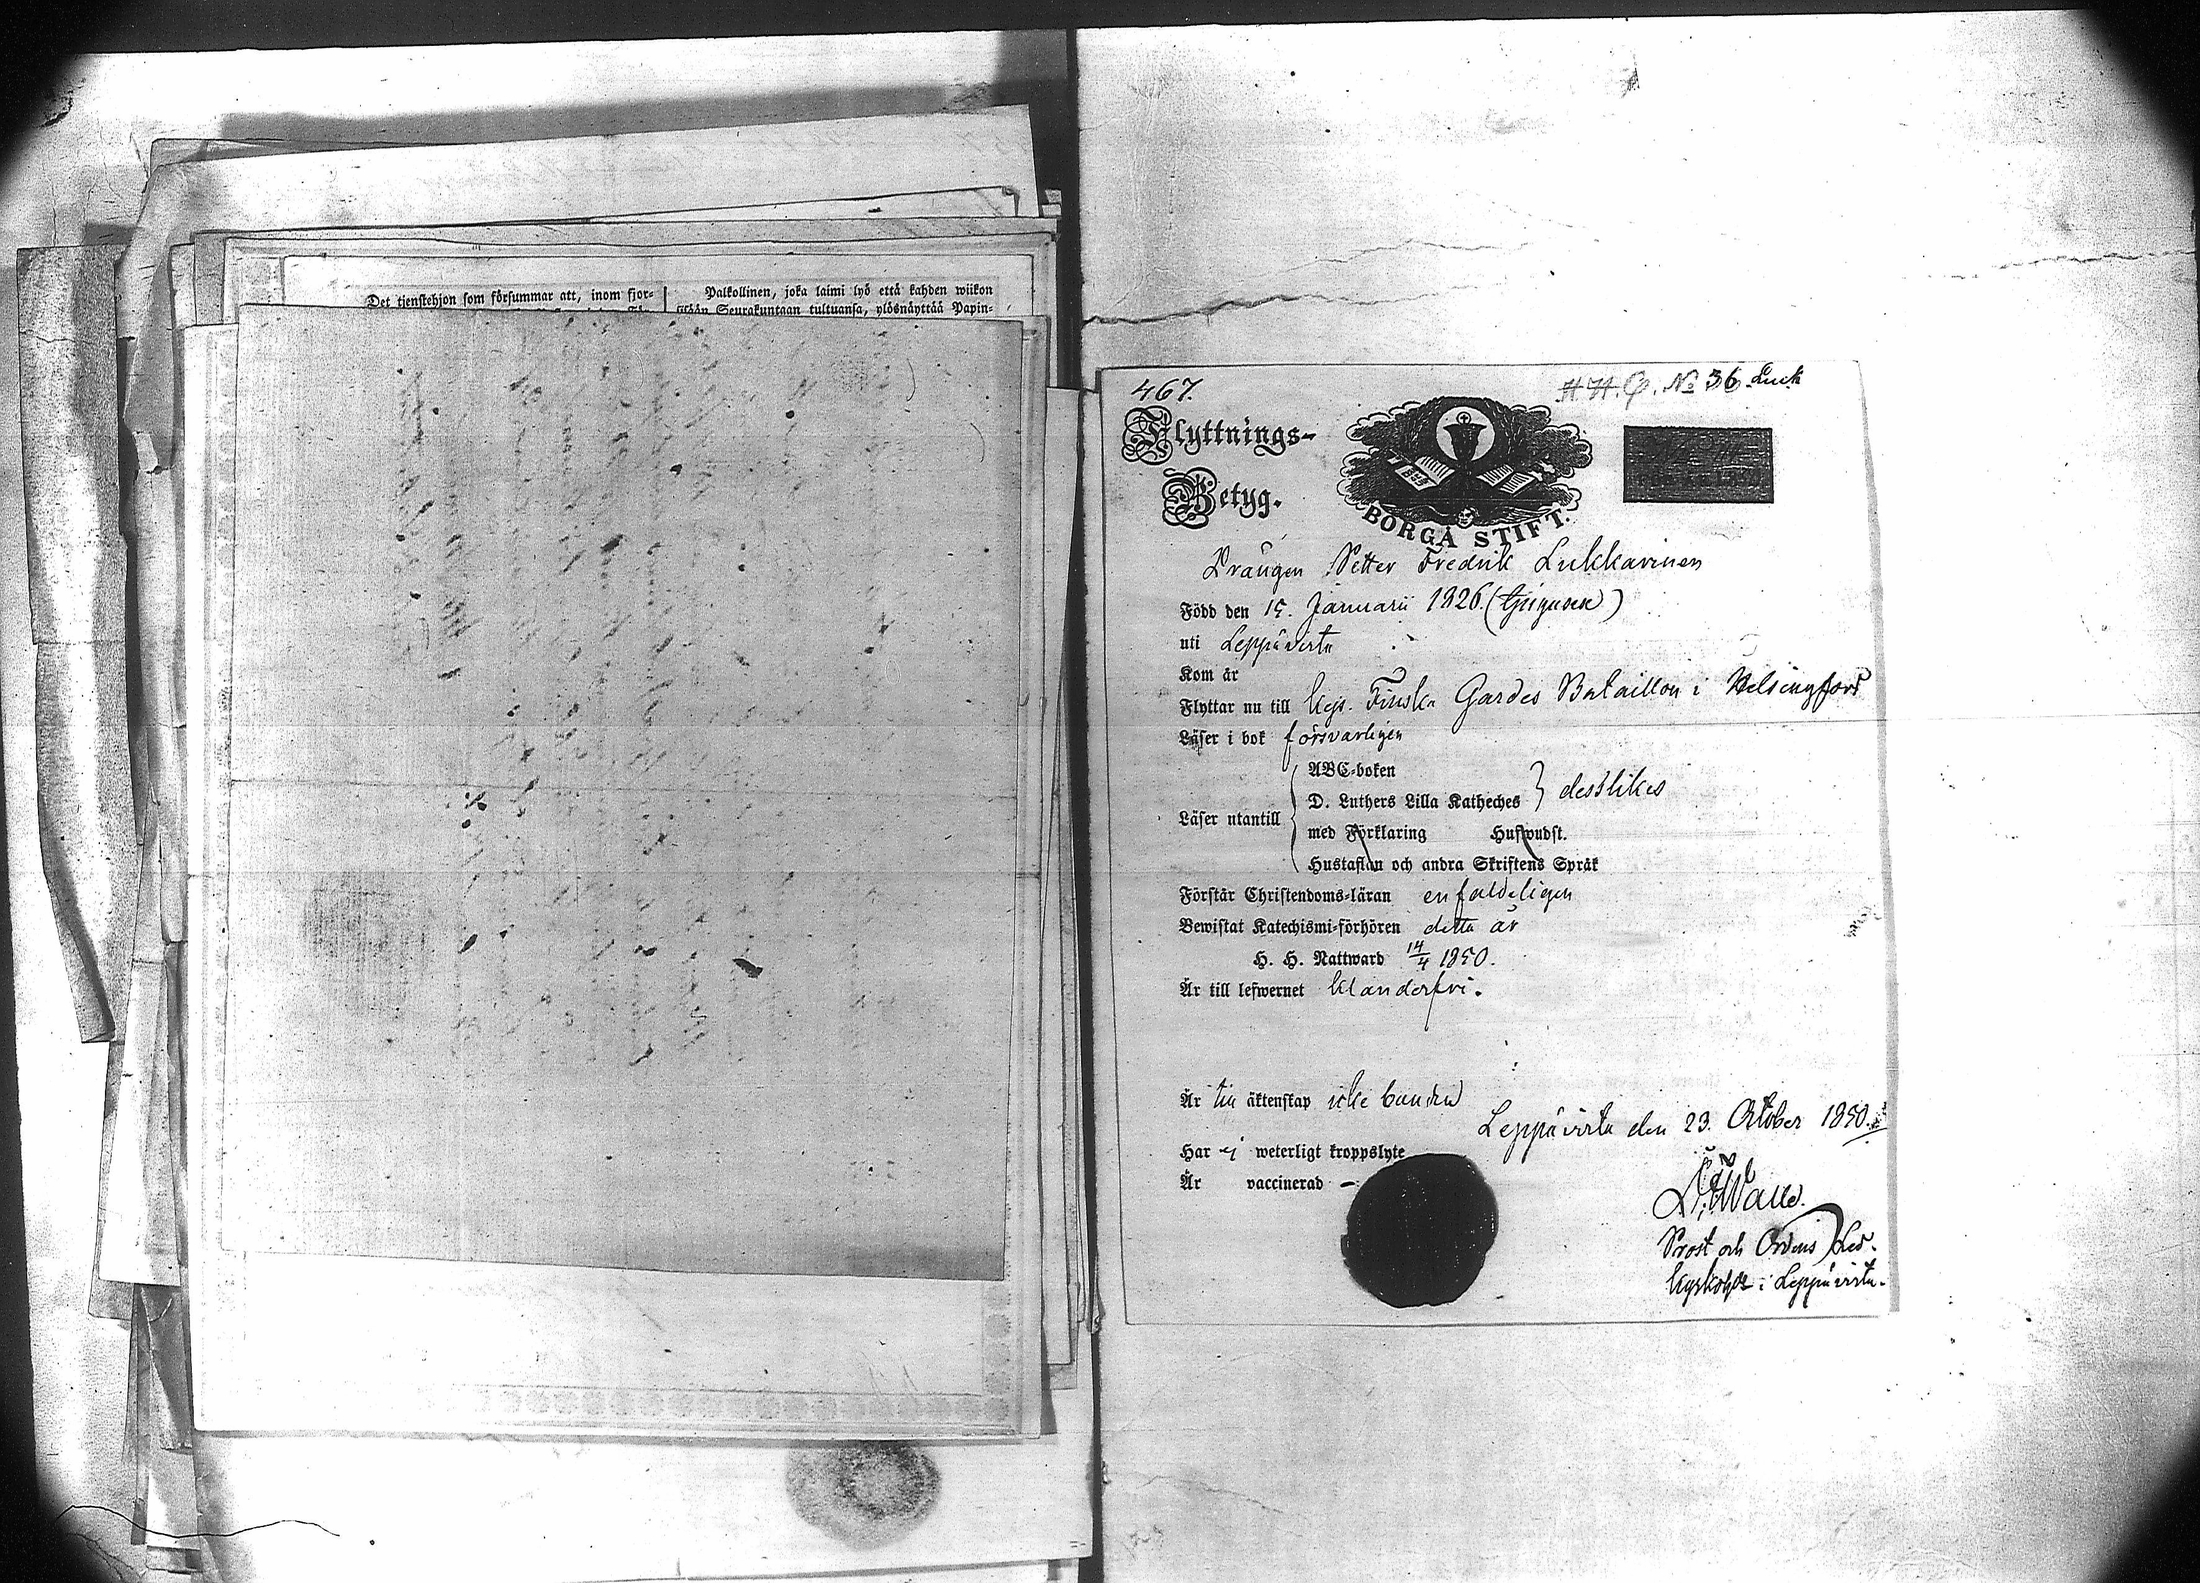 Det tjenstehjon som försummar att, inom fjor=
Palkollinen, joka laimi lyö että kahden wiikon
sisään Seurakuntaan tultuansa, ylösnäyttää Papin=
467.
No 36 Luck
Flyttnings=
Betyg.
BORGÅ STIFT.
Drängen Petter Fredrik Lukkarinen
Född den 15. Januarii 1826.
uti Leppävirta
Kom år
Flyttar nu till Kejs. Finska Gardes Bataillon i Helsingfors
Läser i bok försvarligen
Läser utantill
ABC=boken
D. Luthers Lilla Katheches
desslikes
med Förklaring Husfwudst.
Hustaflan och andra Skriftens Språk
Förstår Christendoms=läran enfaldeligen
Bewistat Katechismi=förhören detta år
H. H. Nattward 14/4 1850.
Är till lefwernet klanderfri.
Är till äktenskap icke bunden
Leppävirta den 23. October 1850.
Har ej weterligt kroppslyte
Är vaccinerad —
Prost och Ordens Led.
Kyrkoh. i Leppävirta.